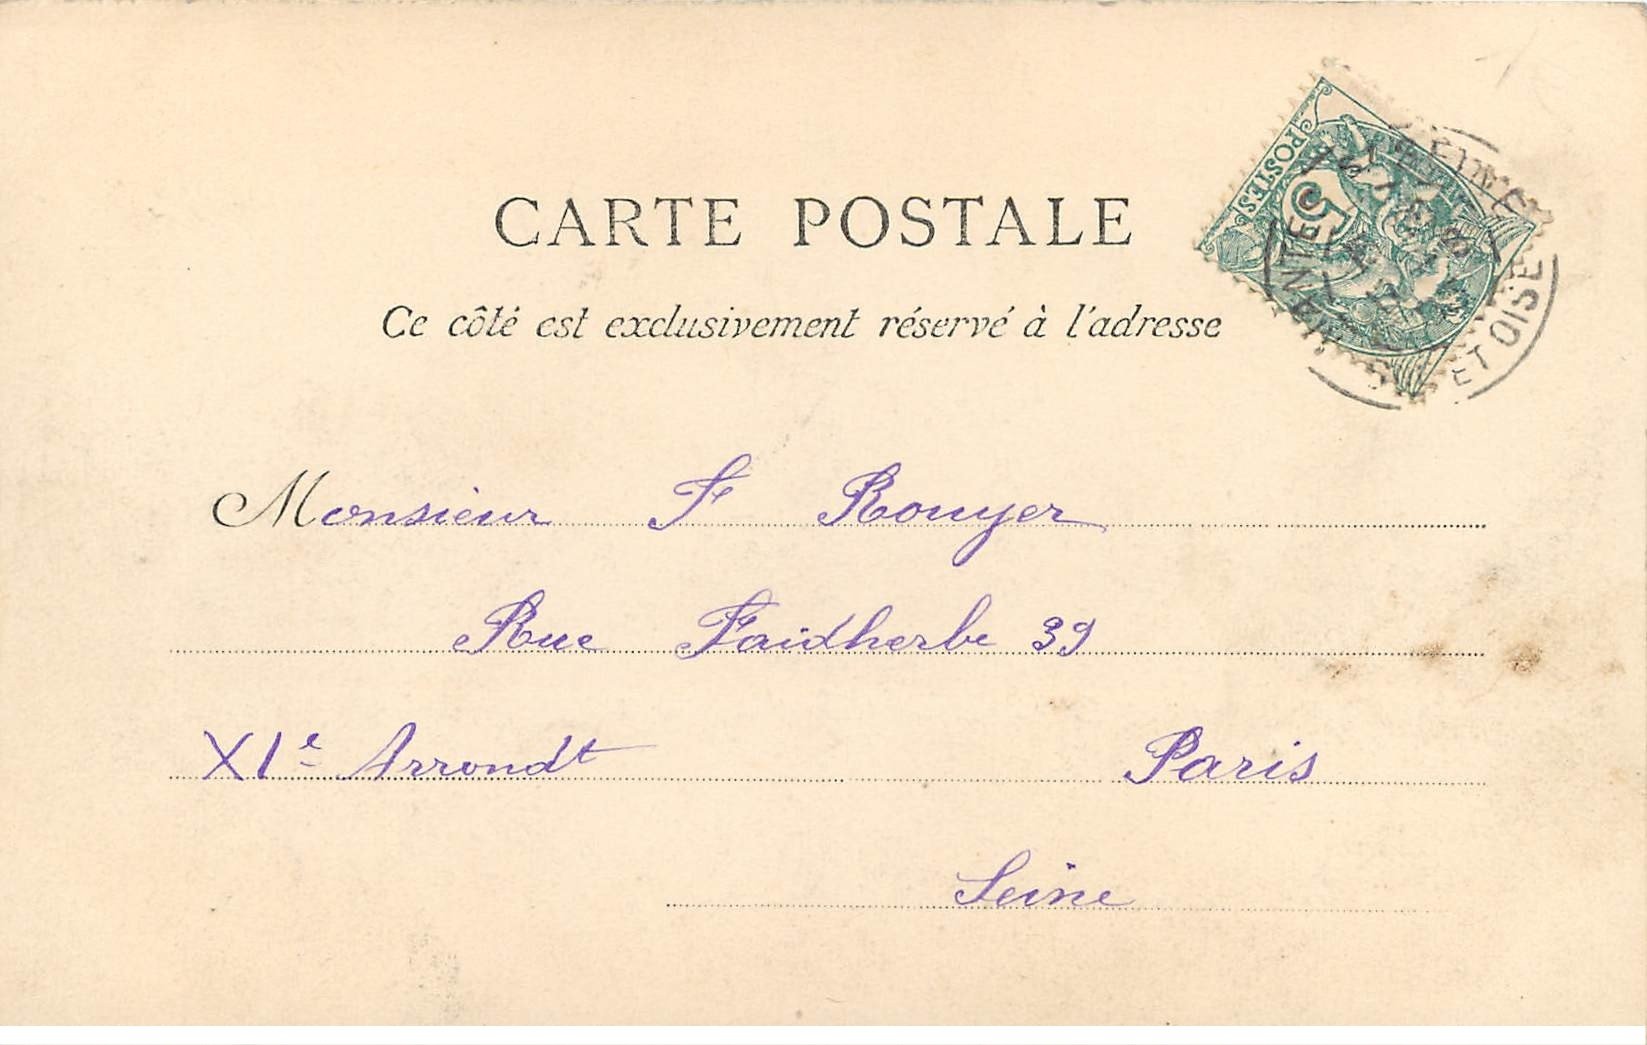 CARTE POSTALE
POSTES
5
MANTES
ET OISE
Ce côté est exclusivement réservé à l'adresse
Monsieur F Rouyer
Rue Faidherbe 39
XIe Arrondt Paris
Seine